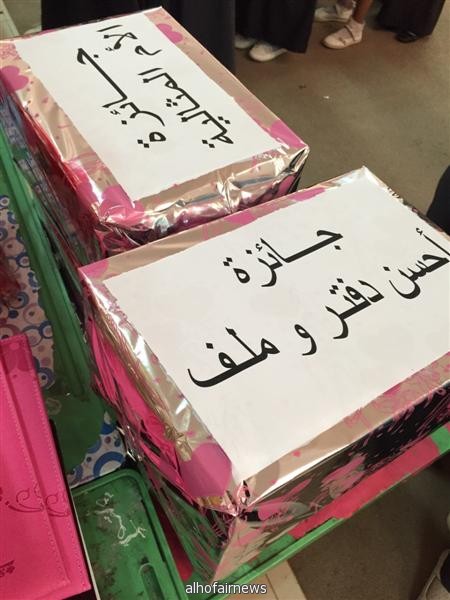 جائزة
الأم المثالية
جائزة
أحسن دفتر و ملف
alhofairnews